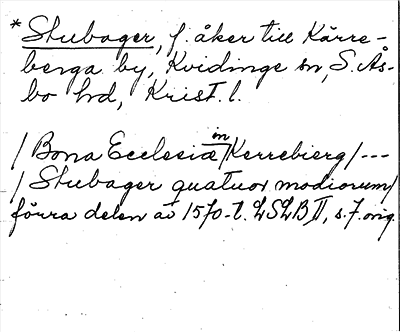 * Stubager, f. åker till Kärre-
berga by, Kvidinge sn, S. Ås-
bo hd, Krist. l.
/ Bona Ecclesiæ in / Kerrebierg / ---
/ Stubager quatuor modiorum /
förra delen av 1570-t. LSLB II, s. 7. orig.